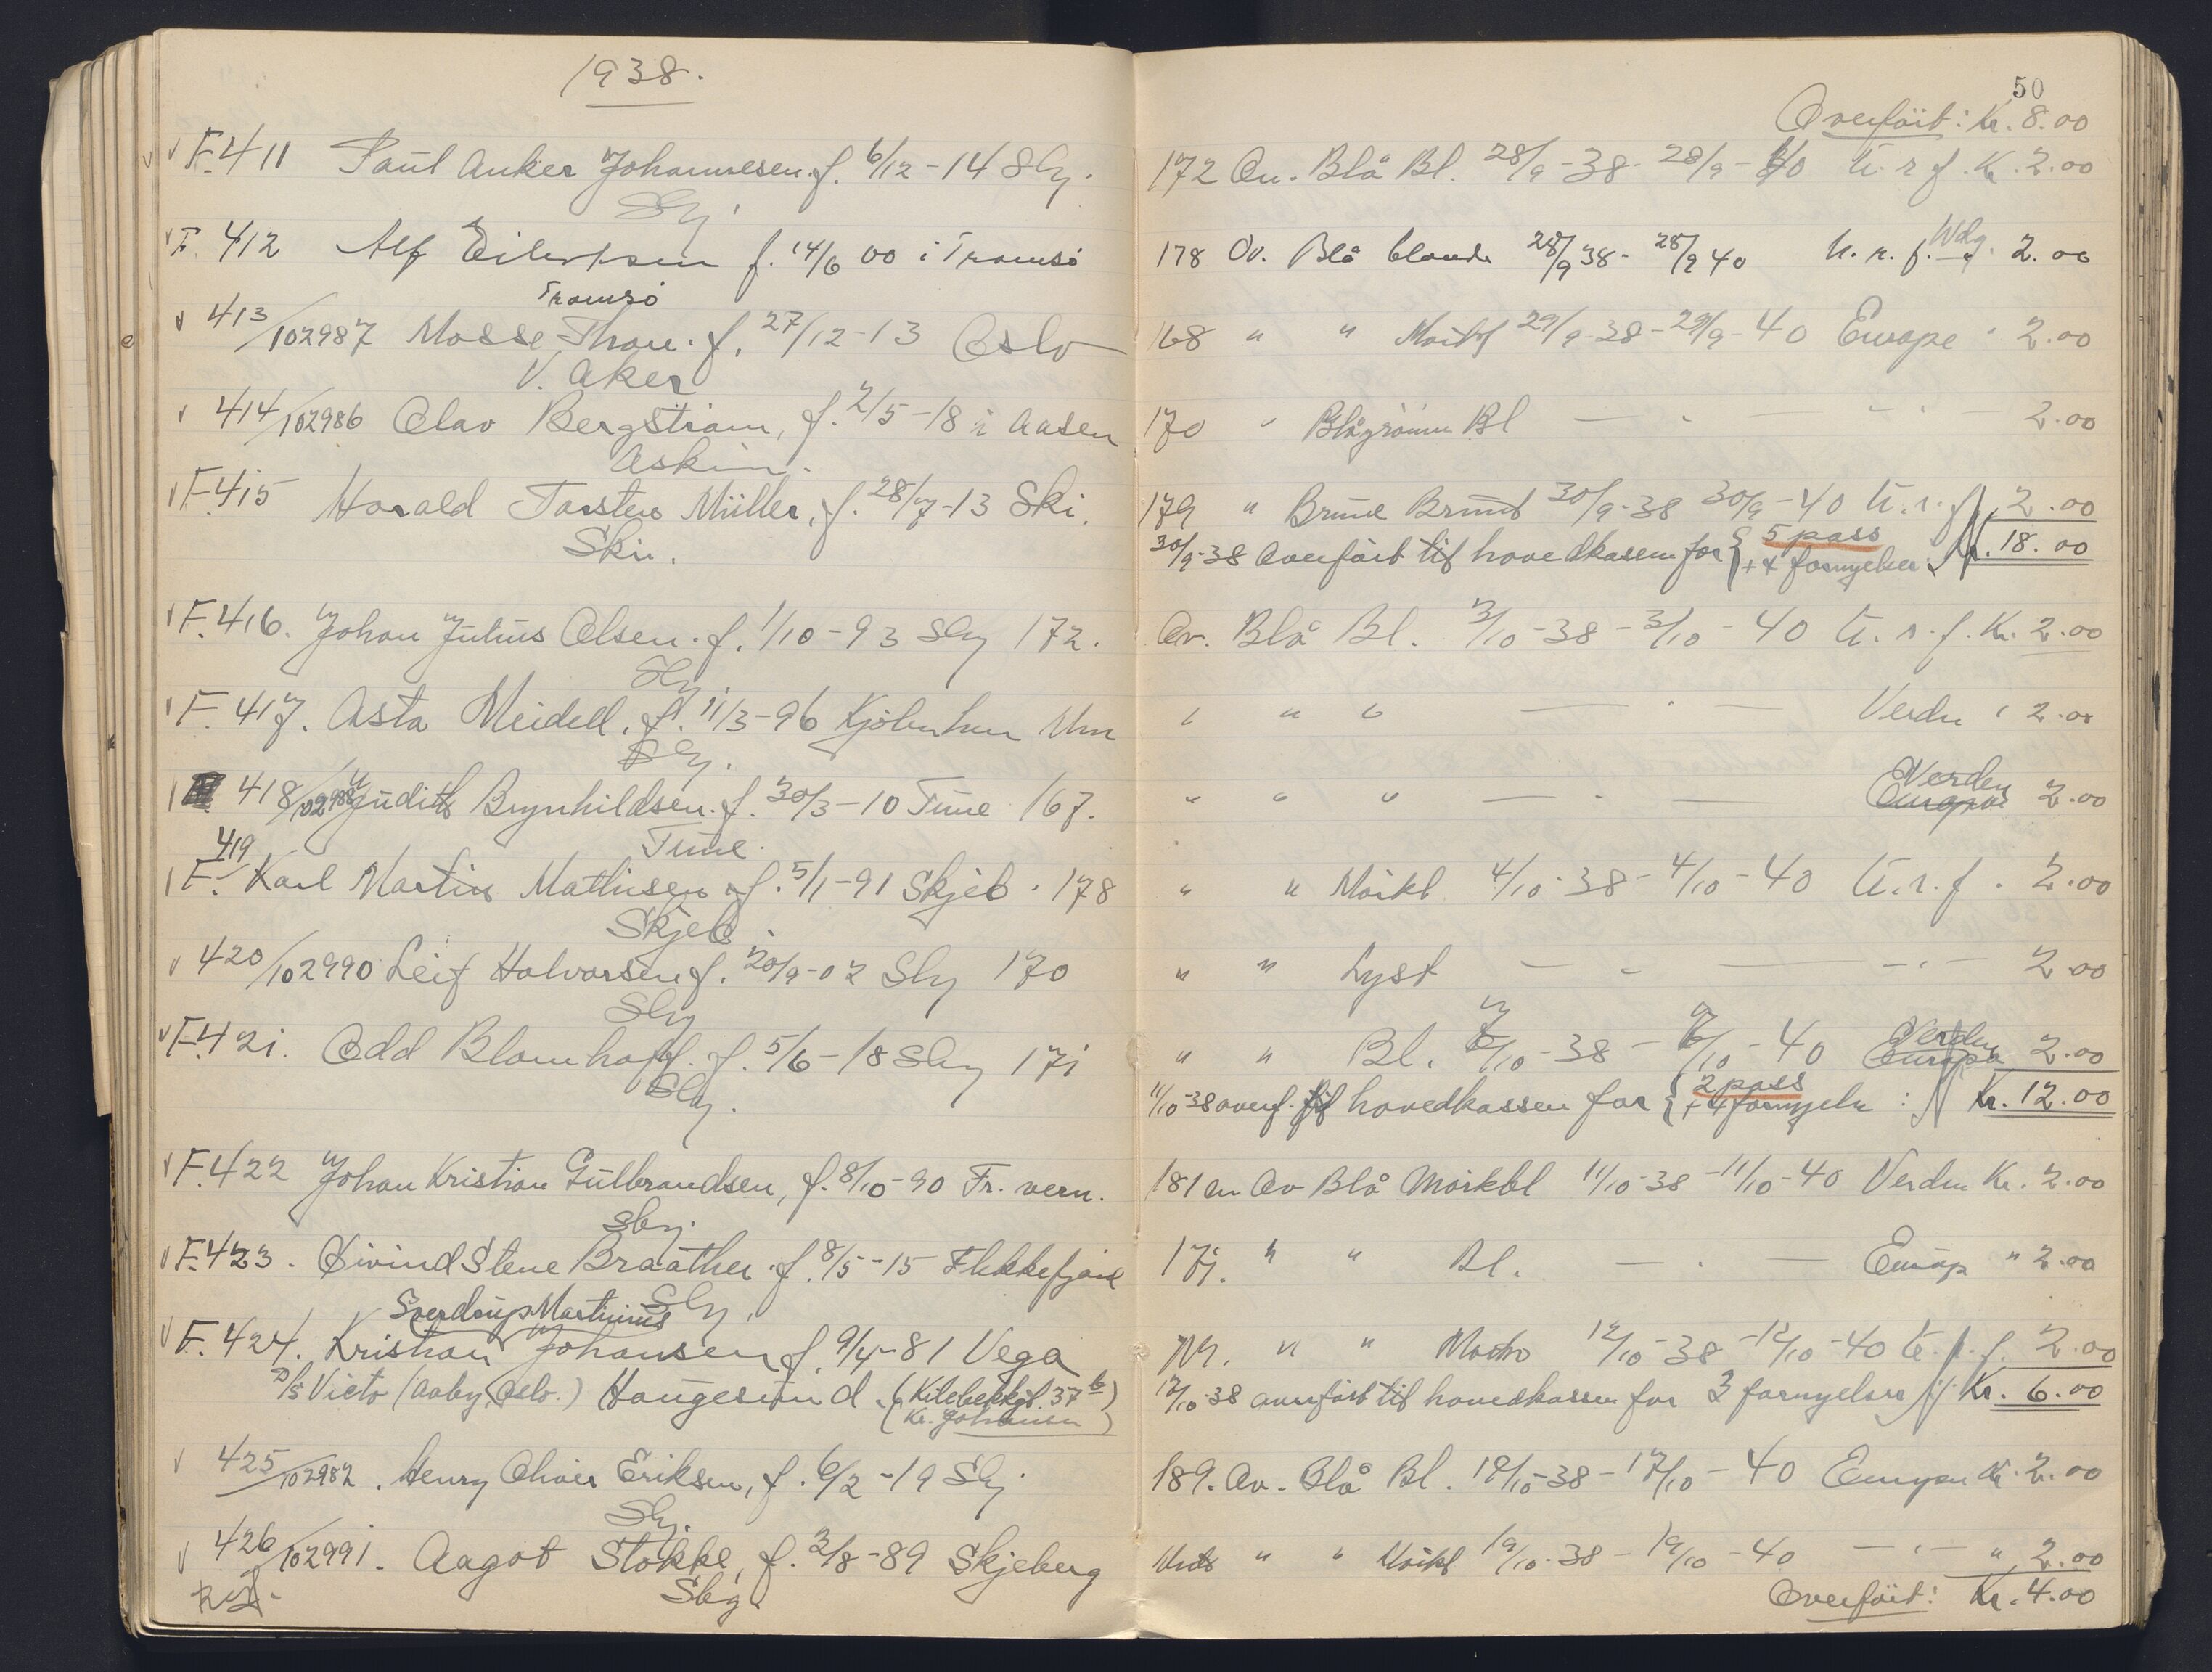 1938.
50
Overført: Kr. 8.00
F. 411 Paul Anker Johannesen. f. 6/12-14 Sbg. 172 Ov. Blå Bl. 28/9-38- 28/9-40 U. r. f. Kr. 2.00
Sbg.
F. 412 Alf Eilertsen f. 14/6 00 i Tromsö 178 Ov. Blå blonde 28/9 38- 28/9 40 U. r. f. 2.00
Tromsö
413/102987 Mosse Thon. f. 27/12-13 Oslo 168 " " Mörkbl 29/9-38-29/9-40 Europa " 2.00
V. Aker
414/102986 Olav Bergström, f. 2/5-18 i Aasen 170 " Blågrönne Bl — " — 2.00
Askim.
F. 415 Harald Torsten Müller, f. 28/7-13 Ski. 179 " Brune Brunt 30/9-38 30/9-40 U. r. f. 2.00
Ski.
30/9-38 Overført til hovedkassen for { 5 pass + 4 fornyelser Kr. 18.00
F. 416. Johan Julius Olsen. f. 1/10-93 Sbg 172. Ov. Blå Bl. 3/10-38-3/10-40 U. r. f. Kr. 2.00
Sbg
F. 417. Asta Meidell. f. 11/3-96 Kjöbenhavn " " " — " — Verden " 2.00
Sbg.
418/102988 Judith Brynhildsen. f. 30/3-10 Tune 167. " " " — " — Verden Europa 2.00
Tune.
F. 419 Karl Martin Mathisen f. 5/1-91 Skjeb. 178 " " Mörkbl 4/10-38-4/10-40 U. r. f. 2.00
Skjeb.
420/102990 Leif Halvorsen f. 20/9-02 Sbg 170 " " Lyst — " — — " — 2.00
Sbg
F. 421. Odd Blomhoff. f. 5/6-18 Sbg 171 " " Bl. 7/10-38 - 7/10-40 Verden Europa 2.00
Sbg.
11/10-38 overf. til hovedkassen for { 2 pass + 4 fornyelser : Kr. 12.00
F. 422 Johan Kristian Gulbrandsen, f. 8/10-90 Fr. vern. 181 cm Ov Blå Mörkbl 11/10-38-11/10-40 Verden Kr. 2.00
Sbg.
F. 423. Øivind Stene Braathen. f. 8/5-15 Flekkefjord 171. " " Bl. — " — Europ " 2.00
Sbg.
Sverdrup Martinius
F. 424. Kristian Johansen f. 9/4-81 Vega " " 12/10-38-12/10-40 U. r. f. 2.00
D/S Victo (Aaby, Oslo.) Haugesund. (Kildebekkgt. 37 b)
(Kr. Johansen)
12/10-38 overført til hovedkassen for 3 fornyelser Kr. 6.00
425/102982. Henry Oliver Eriksen, f. 6/2-19 Sbg. 189. Ov. Blå Bl. 18/10-38-17/10-40 Europa Kr. 2.00
Sbg.
426/102991. Aagot Stokke, f. 2/8-89 Skjeberg " " Mörkbl 19/10-38-19/10-40 — " — " 2.00
Sbg.
Overført: Kr. 4.00